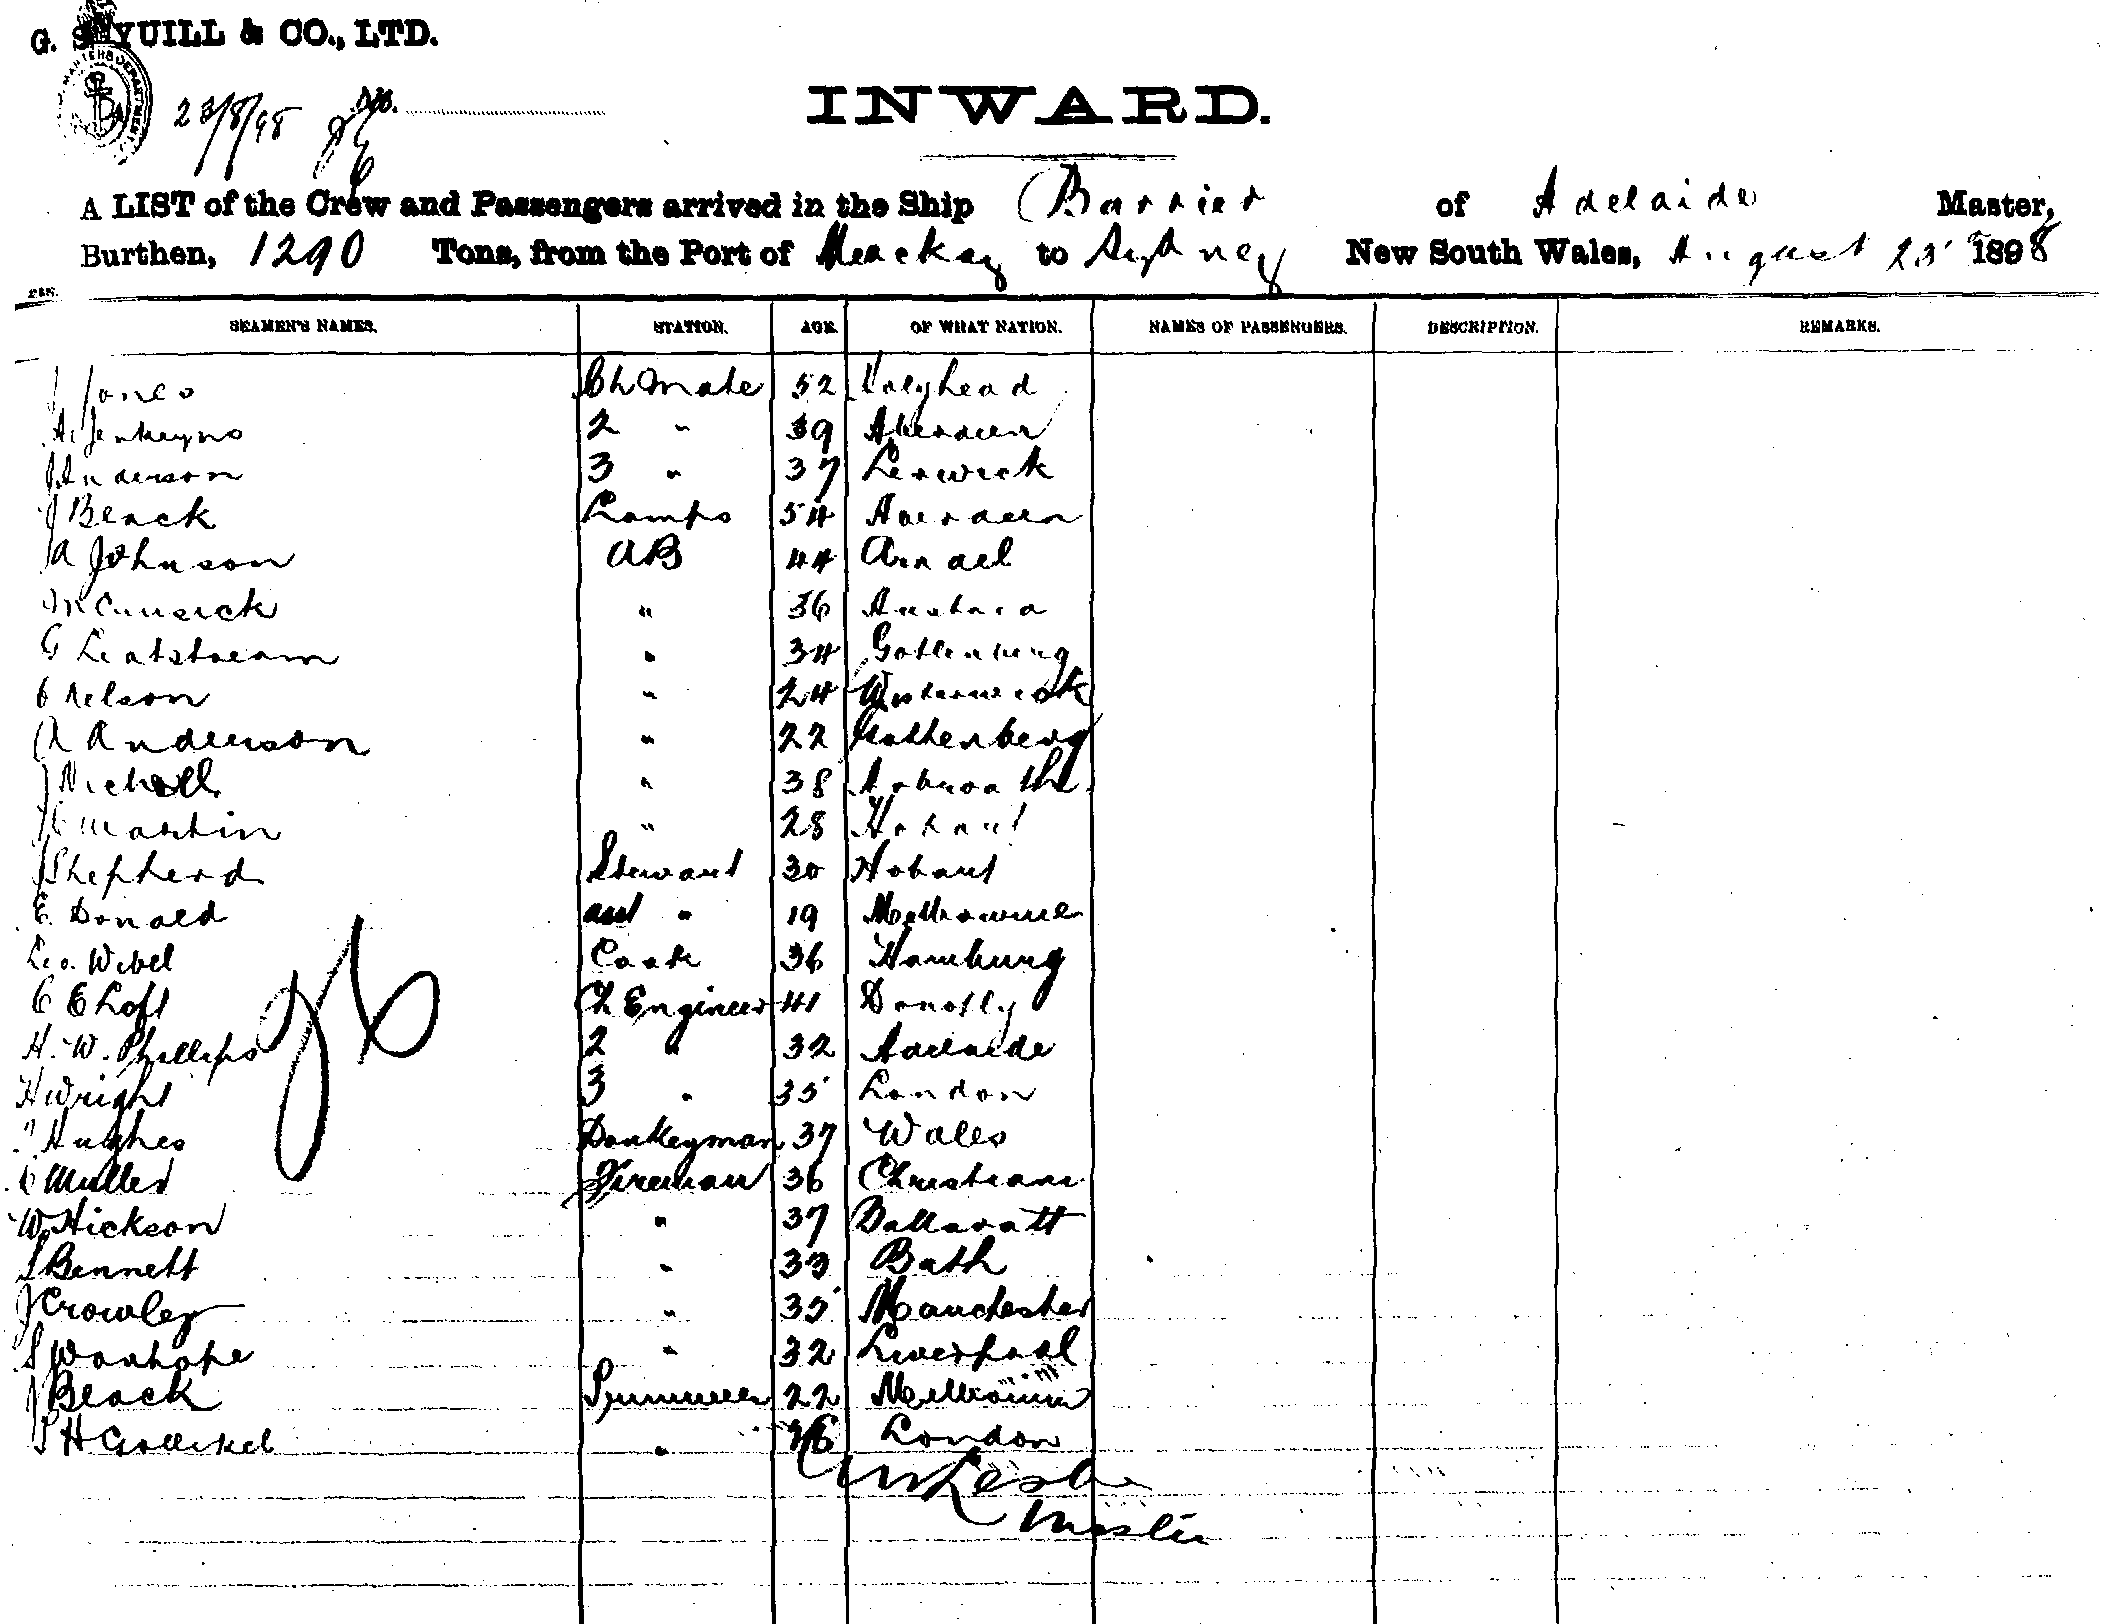 G. S. YUILL & CO., LTD.
23/8/98
INWARD.
A LIST of the Crew and Passengers arrived in the Ship Barrier of Adelaide Master,
Burthen, 1290 Tons, from the Port of Mackay to Sydney New South Wales, August 23 1898
SEAMEN'S NAMES. STATION. AGE. OF WHAT NATION. NAMES OF PASSENGERS. DESCRIPTION. REMARKS.
J Jones Ch Mate 52 Holyhead
A Jenkeyns 2 " 39 Aberdeen
J Anderson 3 " 37 Lerwick
J Black Lamps 54 Aberdeen
A Johnson AB 44
McCusick " 36 Austria
G Leatstream " 34 Gothenburg
C Nelson " 24
A Anderson " 22 Gothenberg
J Nicholl " 38 Arbroath
Martin " 28 Hobart
J Shepherd Steward 30 Hobart
E. Donald " 19 Melbourne
Leo. Wibel Cook 36 Hamburg
C E Loft Ch Engineer 41
H. W. Phillips 2 " 32 Adelaide
H Wright 3 " 35 London
Hughes Donkeyman 37 Wales
C Muller Fireman 36 Christiana
W Hickson " 37 Ballaratt
S Bennett " 33 Bath
J Crowley " 35 Manchester
S Wauhope " 32 Liverpool
J Black Trimmer 22 Melbourne
" London
Master